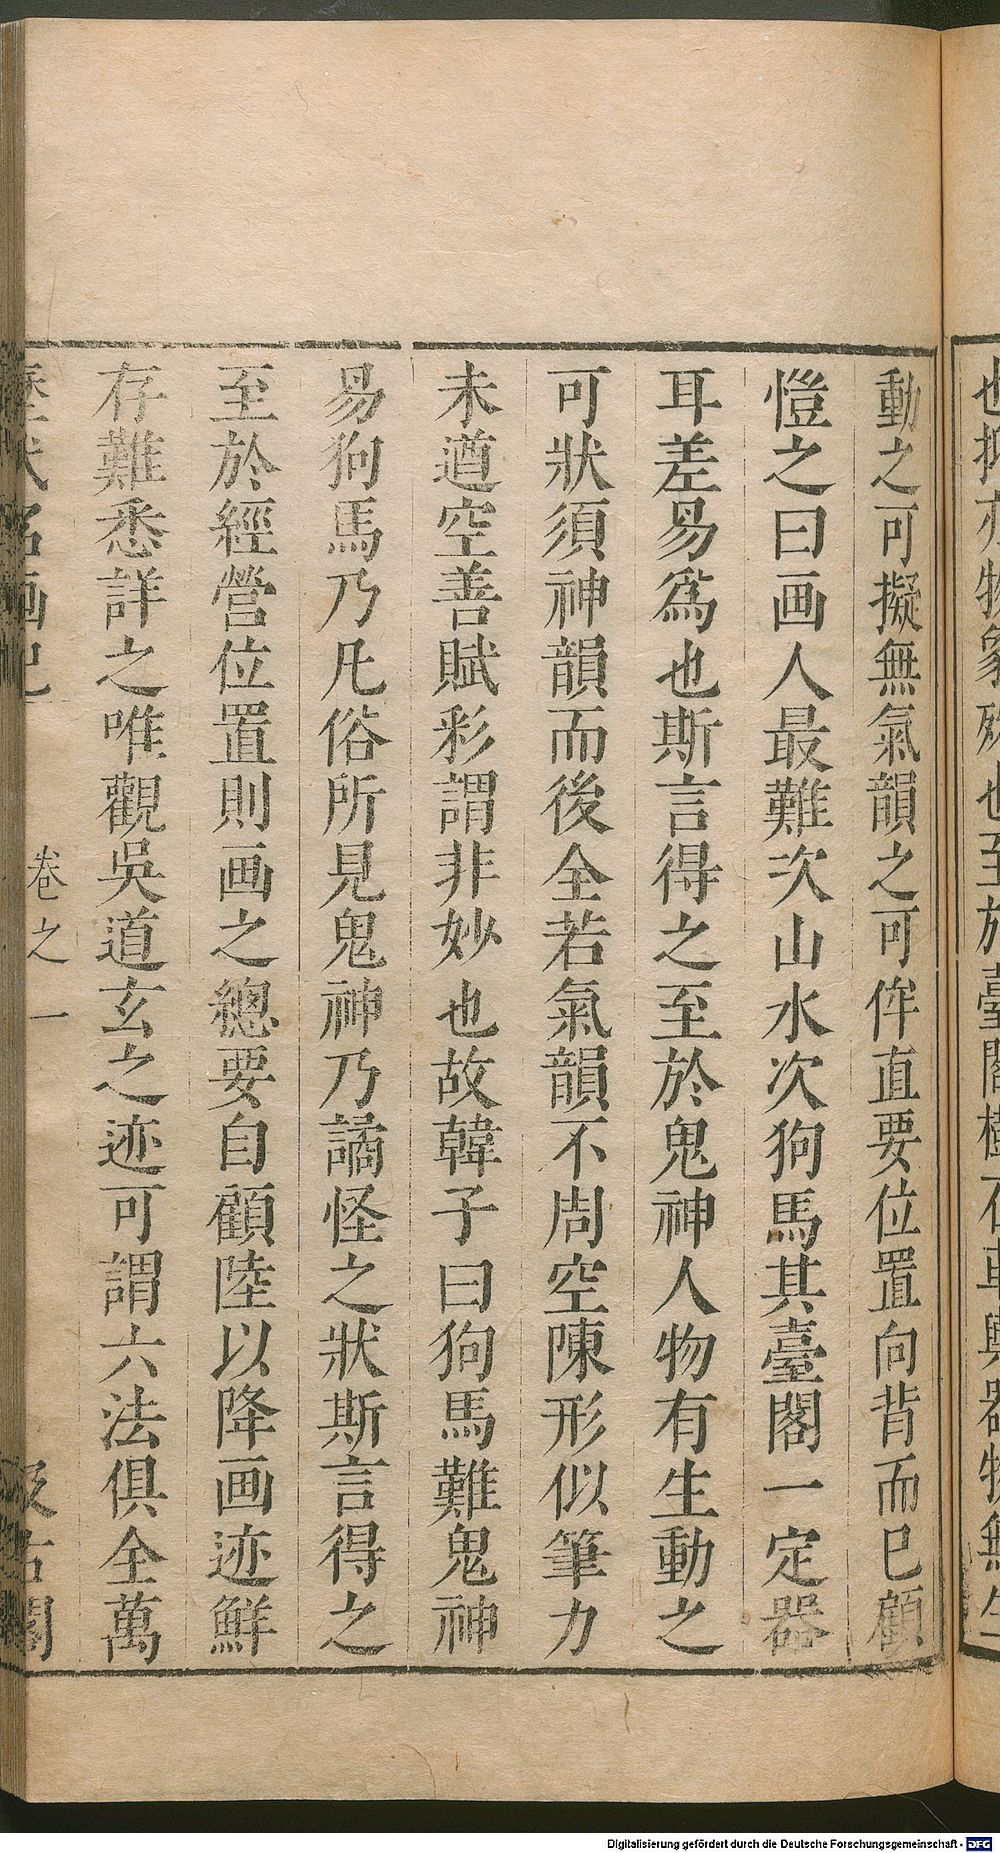 也抑亦物象殊也至於臺閣樹石車輿器物無生
動之可擬無氣韻之可侔直要位置向背而已顧
愷之曰画人最難次山水次狗馬其臺閣一定器
耳差易爲也斯言得之至於鬼神人物有生動之
可狀須神韻而後全若氣韻不周空陳形似筆力
未遒空善賦彩謂非妙也故韓子曰狗馬難鬼神
易狗馬乃凡俗所見鬼神乃譎怪之狀斯言得之
至於經營位置則画之總要自顧陸以降画迹鮮
存難悉詳之唯觀吳道玄之迹可謂六法俱全萬
歷代名画記 卷之一 汲古閣
Digitalisierung gefördert durch die Deutsche Forschungsgemeinschaft - DFG